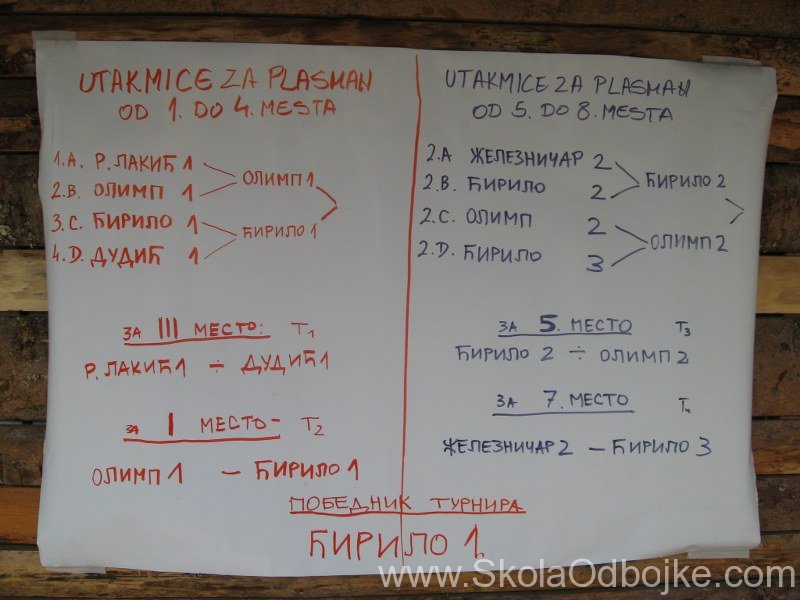 UTAKMICE ZA PLASMAN
OD 1. DO 4. MESTA
1.A. Р. ЛАКИЋ 1
2.B. ОЛИМП 1
ОЛИМП 1
3.C. ЋИРИЛО 1
4.D. ДУДИЋ 1
ЋИРИЛО 1
ЗА III МЕСТО: T1
Р. ЛАКИЋ 1 ÷ ДУДИЋ 1
ЗА I МЕСТО - T2
ОЛИМП 1 — ЋИРИЛО 1
UTAKMICE ZA PLASMAN
OD 5. DO 8. MESTA
2.A ЖЕЛЕЗНИЧАР 2
2.B. ЋИРИЛО 2
ЋИРИЛО 2
2.C. ОЛИМП 2
2.D. ЋИРИЛО 3
ОЛИМП 2
ЗА 5. МЕСТО T3
ЋИРИЛО 2 ÷ ОЛИМП 2
ЗА 7. МЕСТО T4
ЖЕЛЕЗНИЧАР 2 — ЋИРИЛО 3
ПОБЕДНИК ТУРНИРА
ЋИРИЛО 1
www.SkolaOdbojke.com